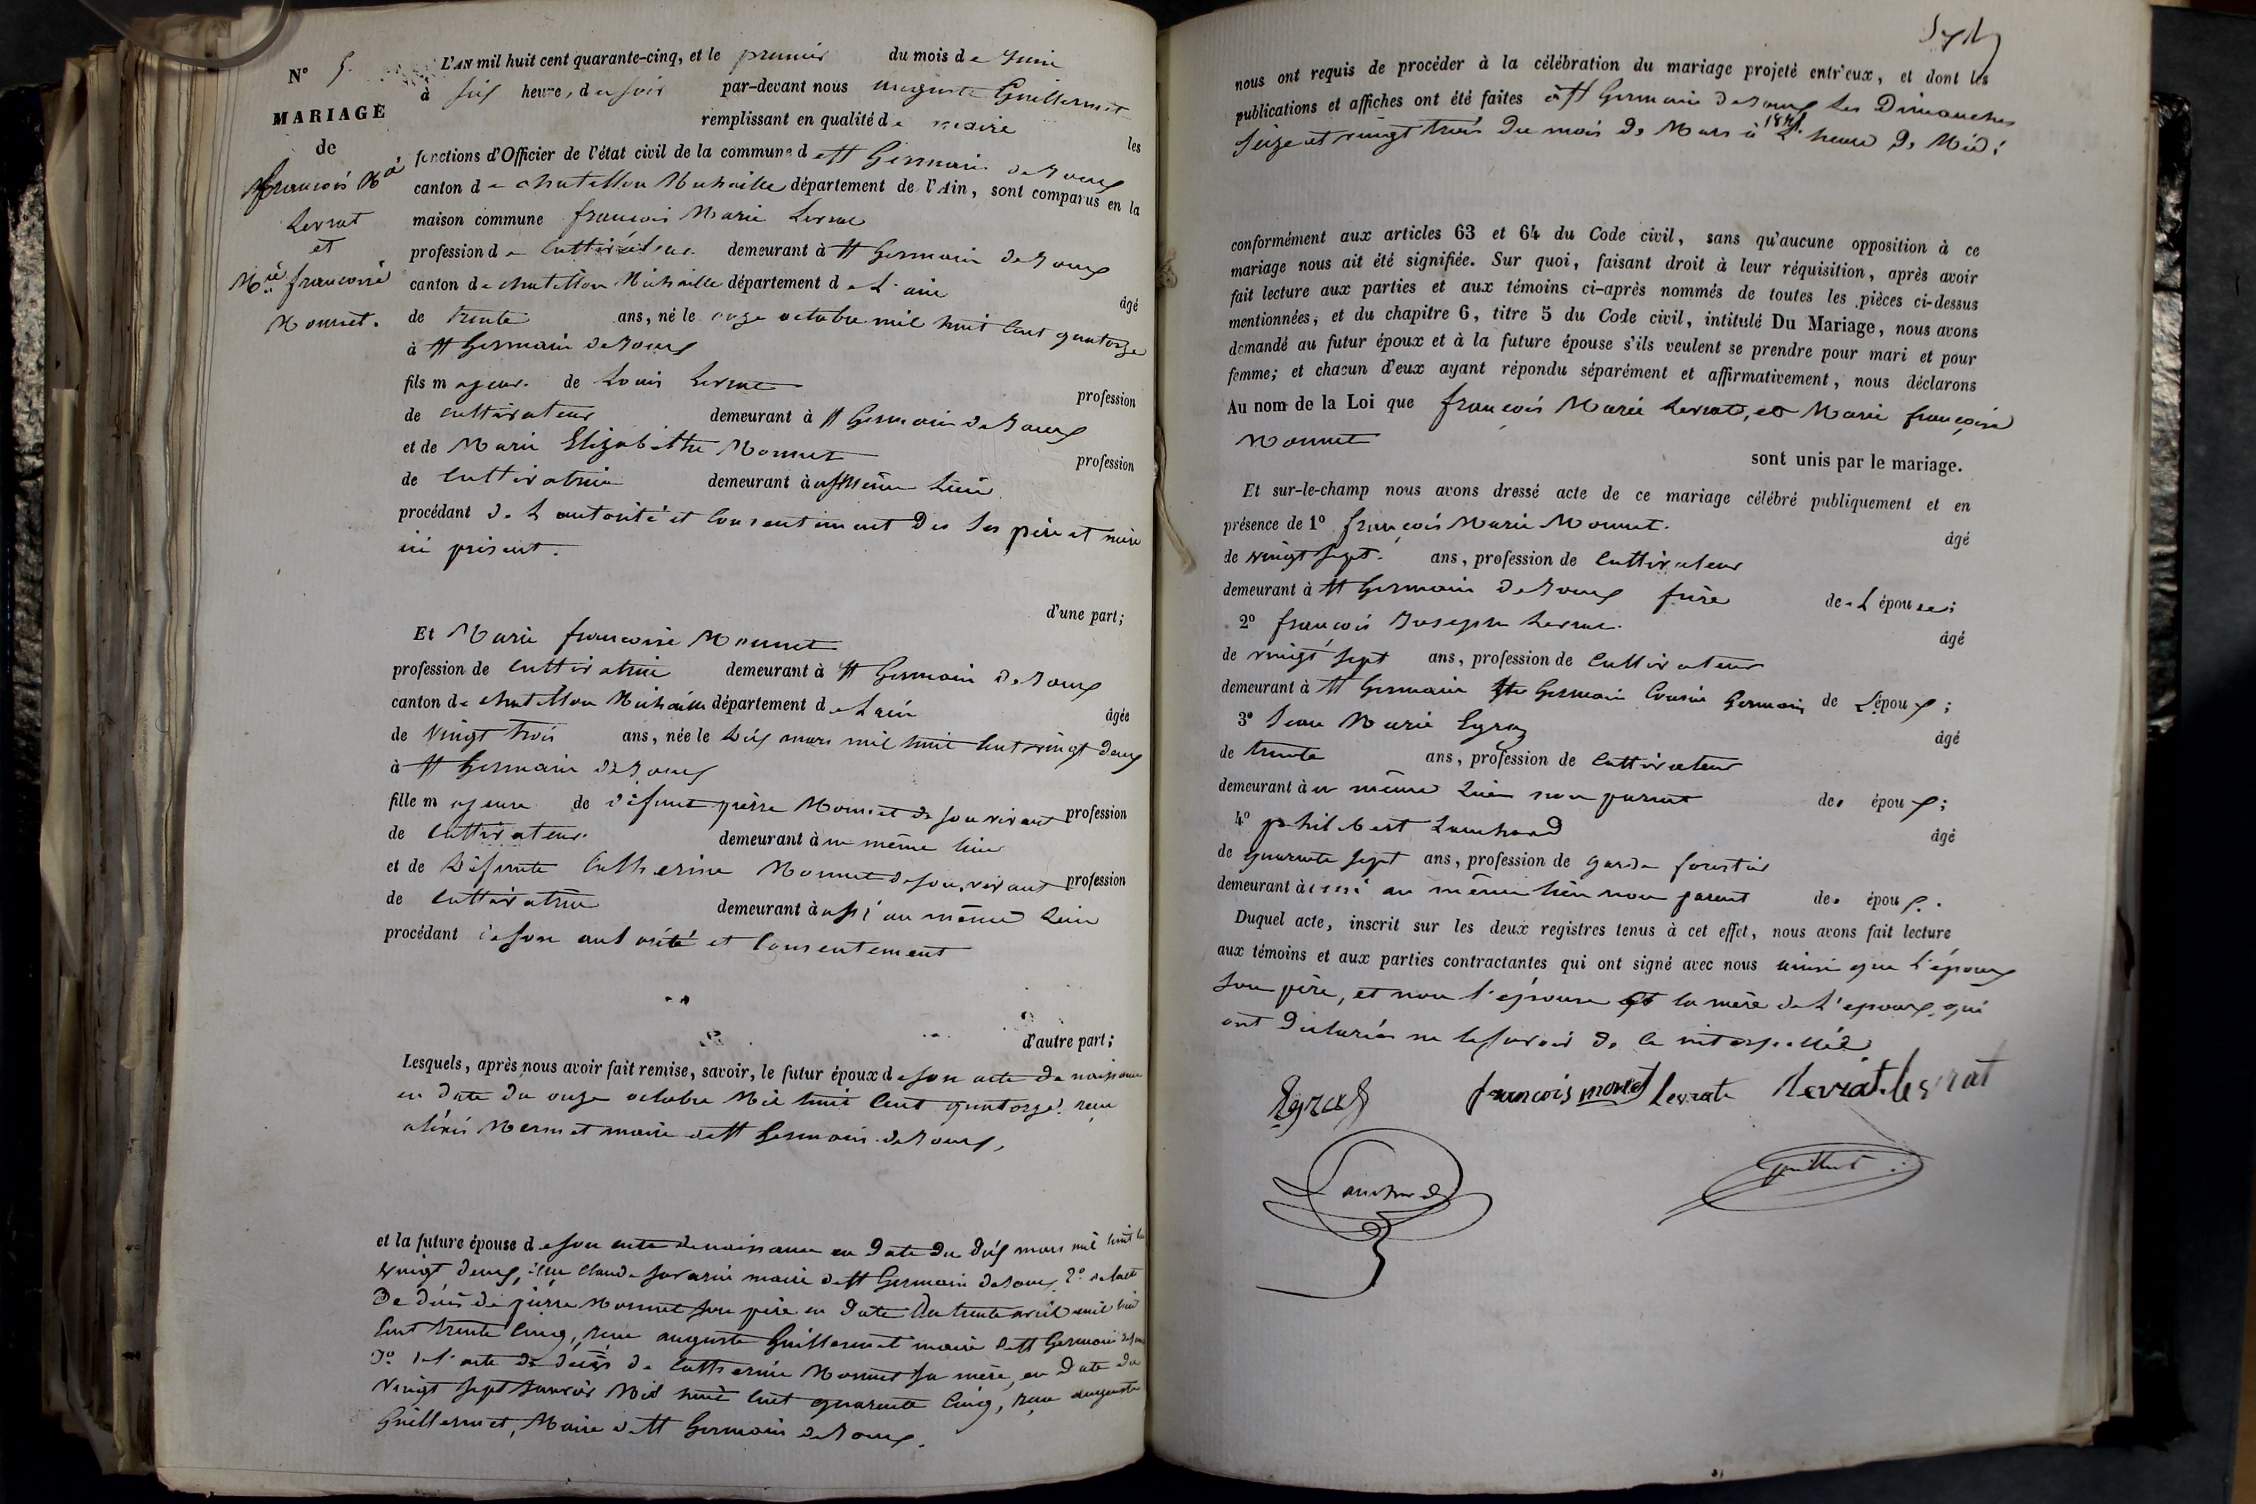 N° 5.
MARIAGE
de
françois Mie
Levrat
et
Mie françoise
Monnet.
L'AN mil huit cent quarante-cinq, et le premier du mois de Juin
à six heure, du soir par-devant nous auguste Guillermet
remplissant en qualité de maire les
fonctions d'Officier de l'état civil de la commune de St Germain de Joux
canton de chatillon Michaille département de l'Ain, sont comparus en la
maison commune françois Marie Levrat
profession de Cultivateur. demeurant à St Germain de Joux
canton de chatillon Michaille département de L'ain âgé
de trente ans, né le onze octobre mil huit Cent quatorze
à St Germain de Joux
fils majeur. de Louis Levrat profession
de cultivateur demeurant à St Germain de Joux
et de Marie Elizabethe Monnet profession
de Cultivatrice demeurant à au même Lieu
procédant de L'autorité et Consentement des ses père et mère
ici présent.
d'une part;
Et Marie françoise Monnet
profession de Cultivatrice demeurant à St Germain de Joux
canton de chatillon Michaille département de Lain âgée
de vingt trois ans, née le dix mars mil huit Cent vingt deux
à St Germain de Joux
fille majeure de défunt pierre Monnet de son vivant profession
de Cultivateur. demeurant à au même lieu
et de défunte Catherine Monnet de son vivant profession
de Cultivatrice demeurant à aussi au même Lieu
procédant de son autorité et Consentement
d'autre part;
Lesquels, après nous avoir fait remise, savoir, le futur époux de son acte de naissance
en date du onze octobre Mil huit Cent quatorze, reçu
Mermet maire de St Germain de Joux,
et la future épouse de son acte de naissance en date du dix mars mil huit Cent
vingt deux, reçu Claude Savarin maire de St Germain de Joux 2° de l'acte
De décès de pierre Monnet son père en date du trente avril mil huit
Cent trente Cinq, reçu auguste Guillermet maire de St Germain de Joux
3° de l'acte de décès de Catherine Monnet sa mère, en date du
vingt sept Janvier Mil huit Cent quarante Cinq, reçu auguste
Guillermet, Maire de St Germain de Joux.
nous ont requis de procéder à la célébration du mariage projeté entr'eux, et dont les
publications et affiches ont été faites à St Germain de Joux Les Dimanches
Seize et vingt trois du mois de Mars 1845 à L'heure de Midi
conformément aux articles 63 et 64 du Code civil, sans qu'aucune opposition à ce
mariage nous ait été signifiée. Sur quoi, faisant droit à leur réquisition, après avoir
fait lecture aux parties et aux témoins ci-après nommés de toutes les pièces ci-dessus
mentionnées, et du chapitre 6, titre 5 du Code civil, intitulé Du Mariage, nous avons
demandé au futur époux et à la future épouse s'ils veulent se prendre pour mari et pour
femme; et chacun d'eux ayant répondu séparément et affirmativement, nous déclarons
Au nom de la Loi que françois Marie Levrat, et Marie françoise
Monnet
sont unis par le mariage.
Et sur-le-champ nous avons dressé acte de ce mariage célébré publiquement et en
présence de 1° françois Marie Monnet. âgé
de vingt sept. ans, profession de Cultivateur
demeurant à St Germain de Joux frère de L'épouse;
2° françois Joseph Levrat. âgé
de vingt sept ans, profession de Cultivateur
demeurant à St Germain Cousin Germain de L'époux;
3° Jean Marie Eyraz âgé
de trente ans, profession de Cultivateur
demeurant à au même Lieu non parent des époux;
4° philibert Lanchard âgé
de quarante sept ans, profession de garde forestier
demeurant à aussi au même lieu non parent des époux.
Duquel acte, inscrit sur les deux registres tenus à cet effet, nous avons fait lecture
aux témoins et aux parties contractantes qui ont signé avec nous ainsi que L'époux
son père, et non l'épouse et la mère de L'époux, qui
ont déclarés ne le savoir de ce interpellée
françois monet Levrat Levrat Levrat